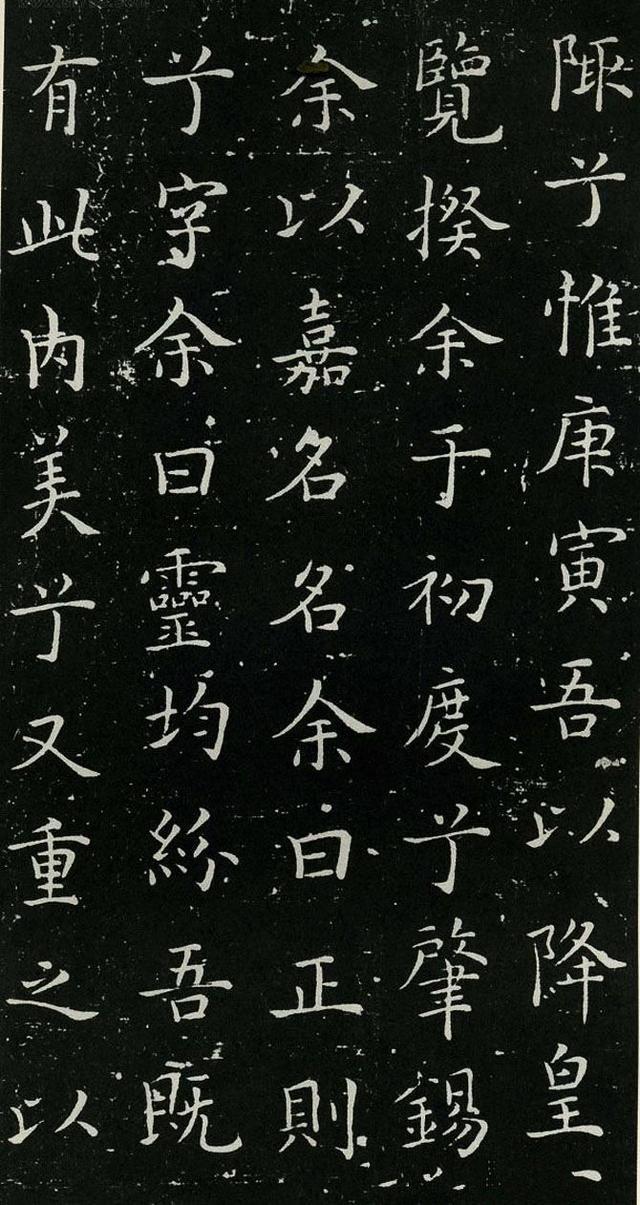 陬兮惟庚寅吾以降皇
覽揆余于初度兮肇錫
余以嘉名名余曰正則
兮字余曰靈均紛吾既
有此内美兮又重之以